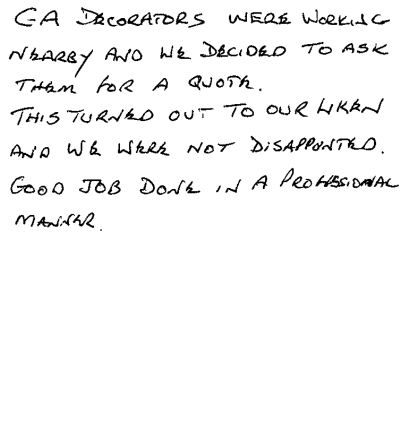 GA DECORATORS WERE WORKING
NEARBY AND WE DECIDED TO ASK
THEM FOR A QUOTE.
THIS TURNED OUT TO OUR LIKEN
AND WE WERE NOT DISAPPOINTED.
GOOD JOB DONE IN A PROFESSIONAL
MANNER.